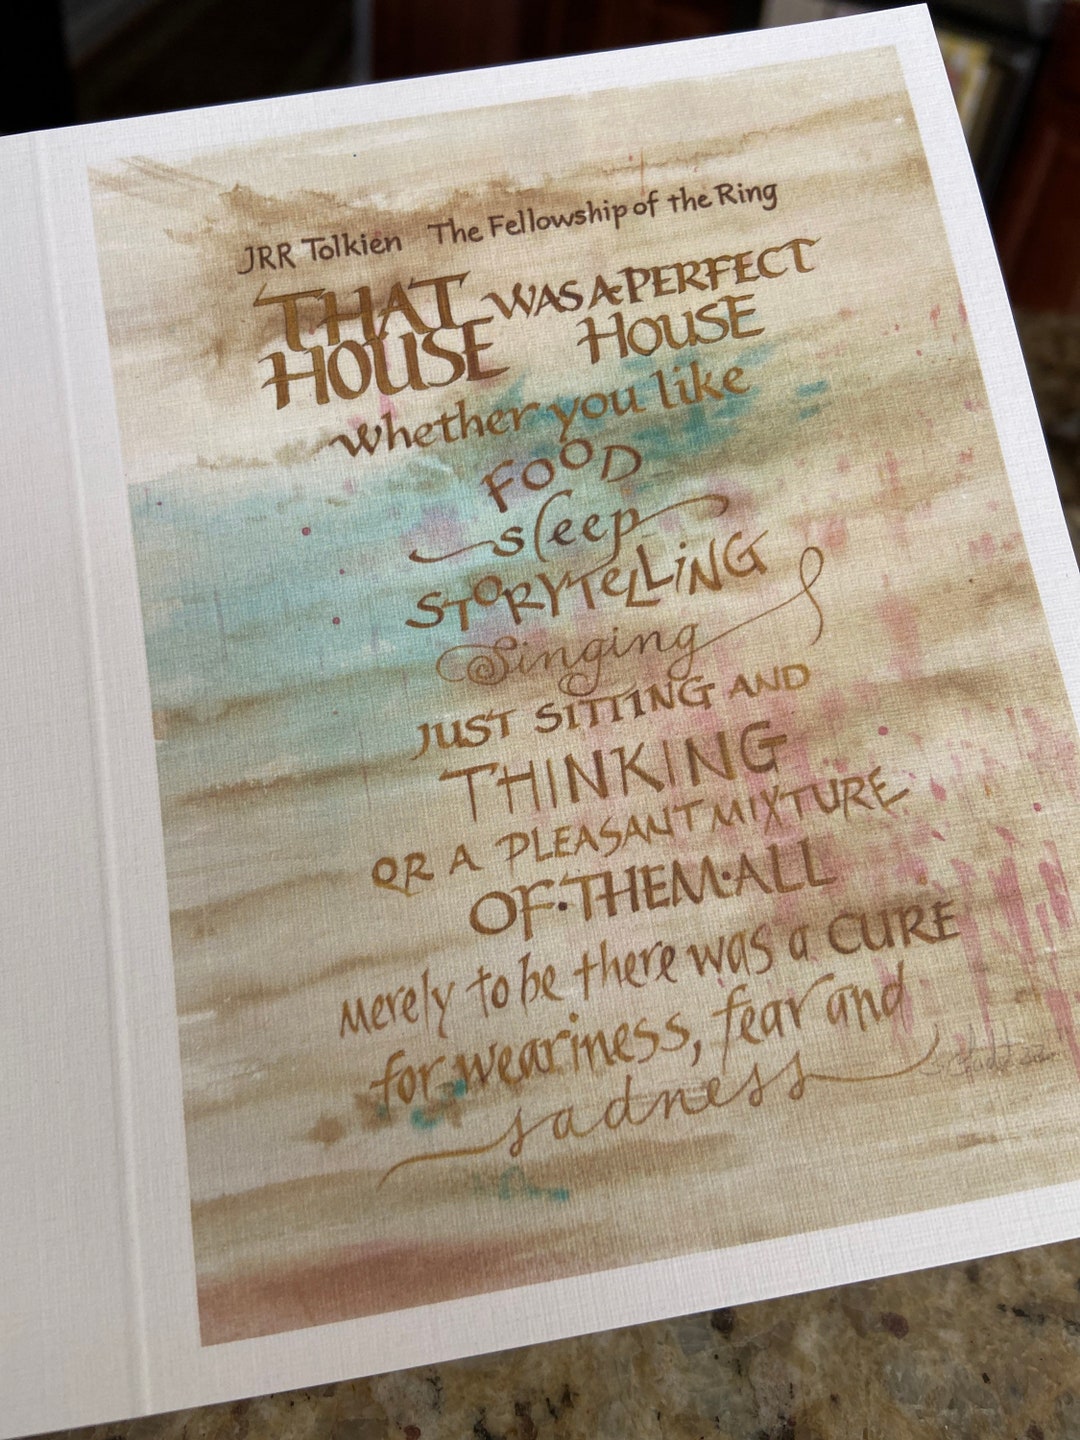 JRR Tolkien The Fellowship of the Ring
THAT WAS A PERFECT
HOUSE HOUSE
whether you like
FOOD
sleep
STORYTELLING
Singing
JUST SITTING AND
THINKING
OR A PLEASANT MIXTURE
OF·THEM·ALL
merely to be there was a CURE
for weariness, fear and
sadness